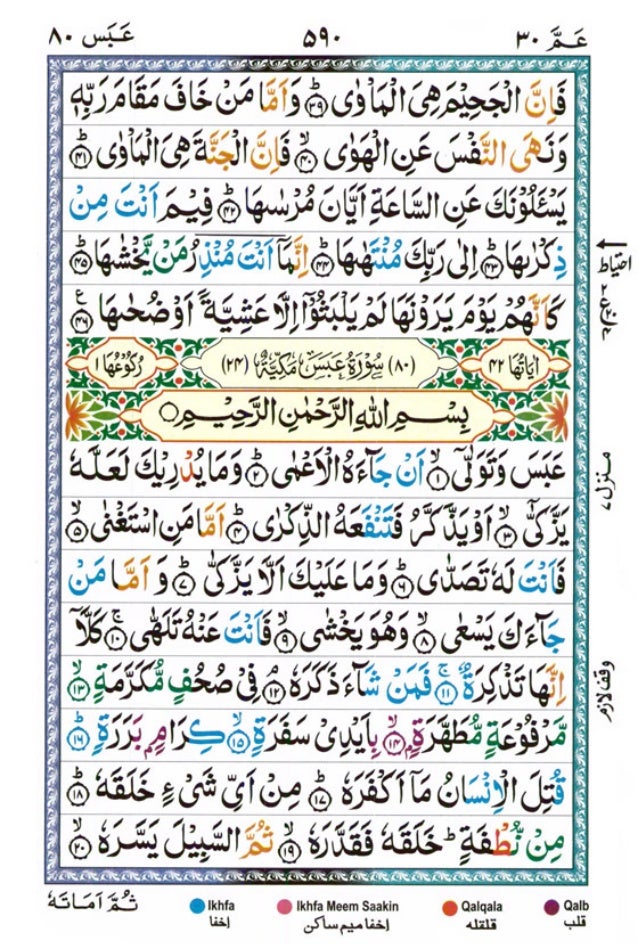 عَمَّ ٣٠
٥٩٠
عَبَسَ ٨٠
فَاِنَّ الْجَحِيْمَ هِىَ الْمَاْوٰى ﴿٣٩﴾ ؕ وَاَمَّا مَنْ خَافَ مَقَامَ رَبِّهٖ
وَنَهَى النَّفْسَ عَنِ الْهَوٰى ﴿٤٠﴾ ۙ فَاِنَّ الْجَنَّةَ هِىَ الْمَاْوٰى ﴿٤١﴾ ؕ
يَسْـَٔلُوْنَكَ عَنِ السَّاعَةِ اَيَّانَ مُرْسٰٮهَا ﴿٤٢﴾ ؕ فِيْمَ اَنْتَ مِنْ
ذِكْرٰٮهَا ﴿٤٣﴾ ؕ اِلٰى رَبِّكَ مُنْتَهٰٮهَا ﴿٤٤﴾ ؕ اِنَّمَاۤ اَنْتَ مُنْذِرُ مَنْ يَّخْشٰٮهَا ﴿٤٥﴾ ؕ
كَاَنَّهُمْ يَوْمَ يَرَوْنَهَا لَمْ يَلْبَثُوْۤا اِلَّا عَشِيَّةً اَوْ ضُحٰٮهَا ﴿٤٦﴾ ع
احتیاط
اٰيَاتُهَا ٤٢
(٨٠) سُوْرَةُ عَبَسَ مَكِّيَّةٌ (٢٤)
رُكُوْعُهَا ١
بِسْمِ اللّٰهِ الرَّحْمٰنِ الرَّحِيْمِ
عَبَسَ وَتَوَلّٰٓى ﴿١﴾ ۙ اَنْ جَآءَهُ الْاَعْمٰى ﴿٢﴾ ؕ وَمَا يُدْرِيْكَ لَعَلَّهٗ
يَزَّكّٰٓى ﴿٣﴾ ۙ اَوْ يَذَّكَّرُ فَتَنْفَعَهُ الذِّكْرٰى ﴿٤﴾ ؕ اَمَّا مَنِ اسْتَغْنٰى ﴿٥﴾ ۙ
منزل ٧
فَاَنْتَ لَهٗ تَصَدّٰى ﴿٦﴾ ؕ وَمَا عَلَيْكَ اَلَّا يَزَّكّٰى ﴿٧﴾ ؕ وَاَمَّا مَنْ
جَآءَكَ يَسْعٰى ﴿٨﴾ ۙ وَهُوَ يَخْشٰى ﴿٩﴾ ۙ فَاَنْتَ عَنْهُ تَلَهّٰى ﴿١٠﴾ ۚ كَلَّاۤ
اِنَّهَا تَذْكِرَةٌ ﴿١١﴾ ۚ فَمَنْ شَآءَ ذَكَرَهٗ ﴿١٢﴾ ۘ فِىْ صُحُفٍ مُّكَرَّمَةٍ ﴿١٣﴾ ۙ
وقف لازم
مَّرْفُوْعَةٍ مُّطَهَّرَةٍ ۢ ﴿١٤﴾ ۙ بِاَيْدِىْ سَفَرَةٍ ﴿١٥﴾ ۙ كِرَامٍ ۢ بَرَرَةٍ ﴿١٦﴾ ؕ
قُتِلَ الْاِنْسَانُ مَاۤ اَكْفَرَهٗ ﴿١٧﴾ ؕ مِنْ اَىِّ شَىْءٍ خَلَقَهٗ ﴿١٨﴾ ؕ
مِنْ نُّطْفَةٍ ؕ خَلَقَهٗ فَقَدَّرَهٗ ﴿١٩﴾ ۙ ثُمَّ السَّبِيْلَ يَسَّرَهٗ ﴿٢٠﴾ ۙ
ثُمَّ اَمَاتَهٗ
Ikhfa
اِخفا
Ikhfa Meem Saakin
اِخفا ميم ساكن
Qalqala
قلقله
Qalb
قلب